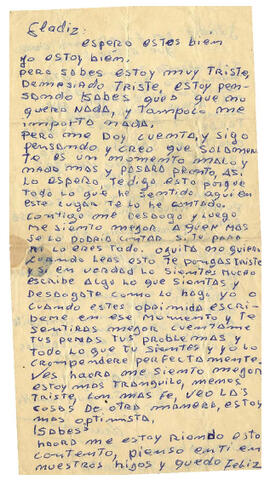 Gladiz:
espero estes bien
yo estoy bien.
pero sabes estoy muy triste,
demasiado triste, estoy pen-
sando ¡sabes que? que no
quero nada, y tampoco me
importa nada.
pero me doy cuenta, y sigo
pensando y creo que solamen-
te es un momento malo y
nada mas y pasara pronto, asi
lo espero, te digo esto porque
todo lo que he sentido aqui en
este lugar te lo he contado.
contigo me desaogo y luego
me siento mejor. a quien mas
se lo podria contar si te para
mi lo eres todo. oquita no quiero
cuando leas esto te pongas triste
y si en verdad lo sientes mucho
escribe algo lo que sientas y
desaogate como lo hago yo o
cuando estes oprimida escri-
beme en ese momento y te
sentiras mejor cuentame
tus penas tus problemas y
todo lo que tu sientes y yo lo
crompendere perfectamente.
ves haora me siento mejor
estoy mas tranquilo, menos
triste, con mas fe, veo las
cosas de otra manera, estoy
mas optimista,
¡sabes?
haora me estoy riendo esto
contento, pienso en ti en
nuestros hijos y quedo feliz